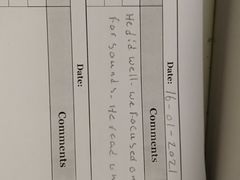 Date: 16-01-2021
Comments
He did well. we focused on
for sounds. He read
Date:
Comments